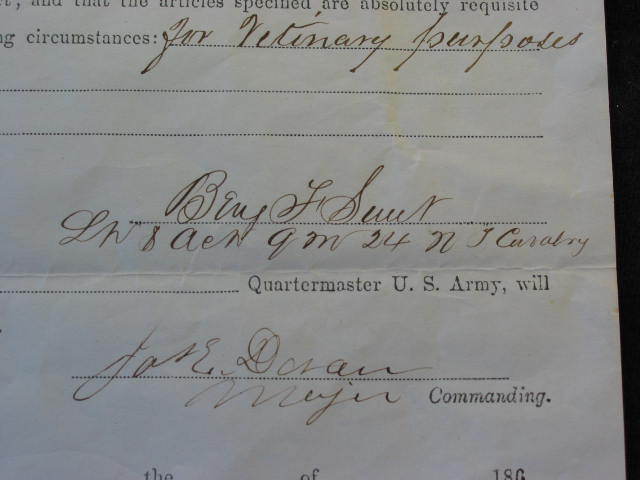 , and that the articles specified are absolutely requisite
ng circumstances: for Vetinary purposes
Benj F
Lt & Act Q M 24 N Y Cavalry
Quartermaster U. S. Army, will
Doran
Major Commanding.
the of 186